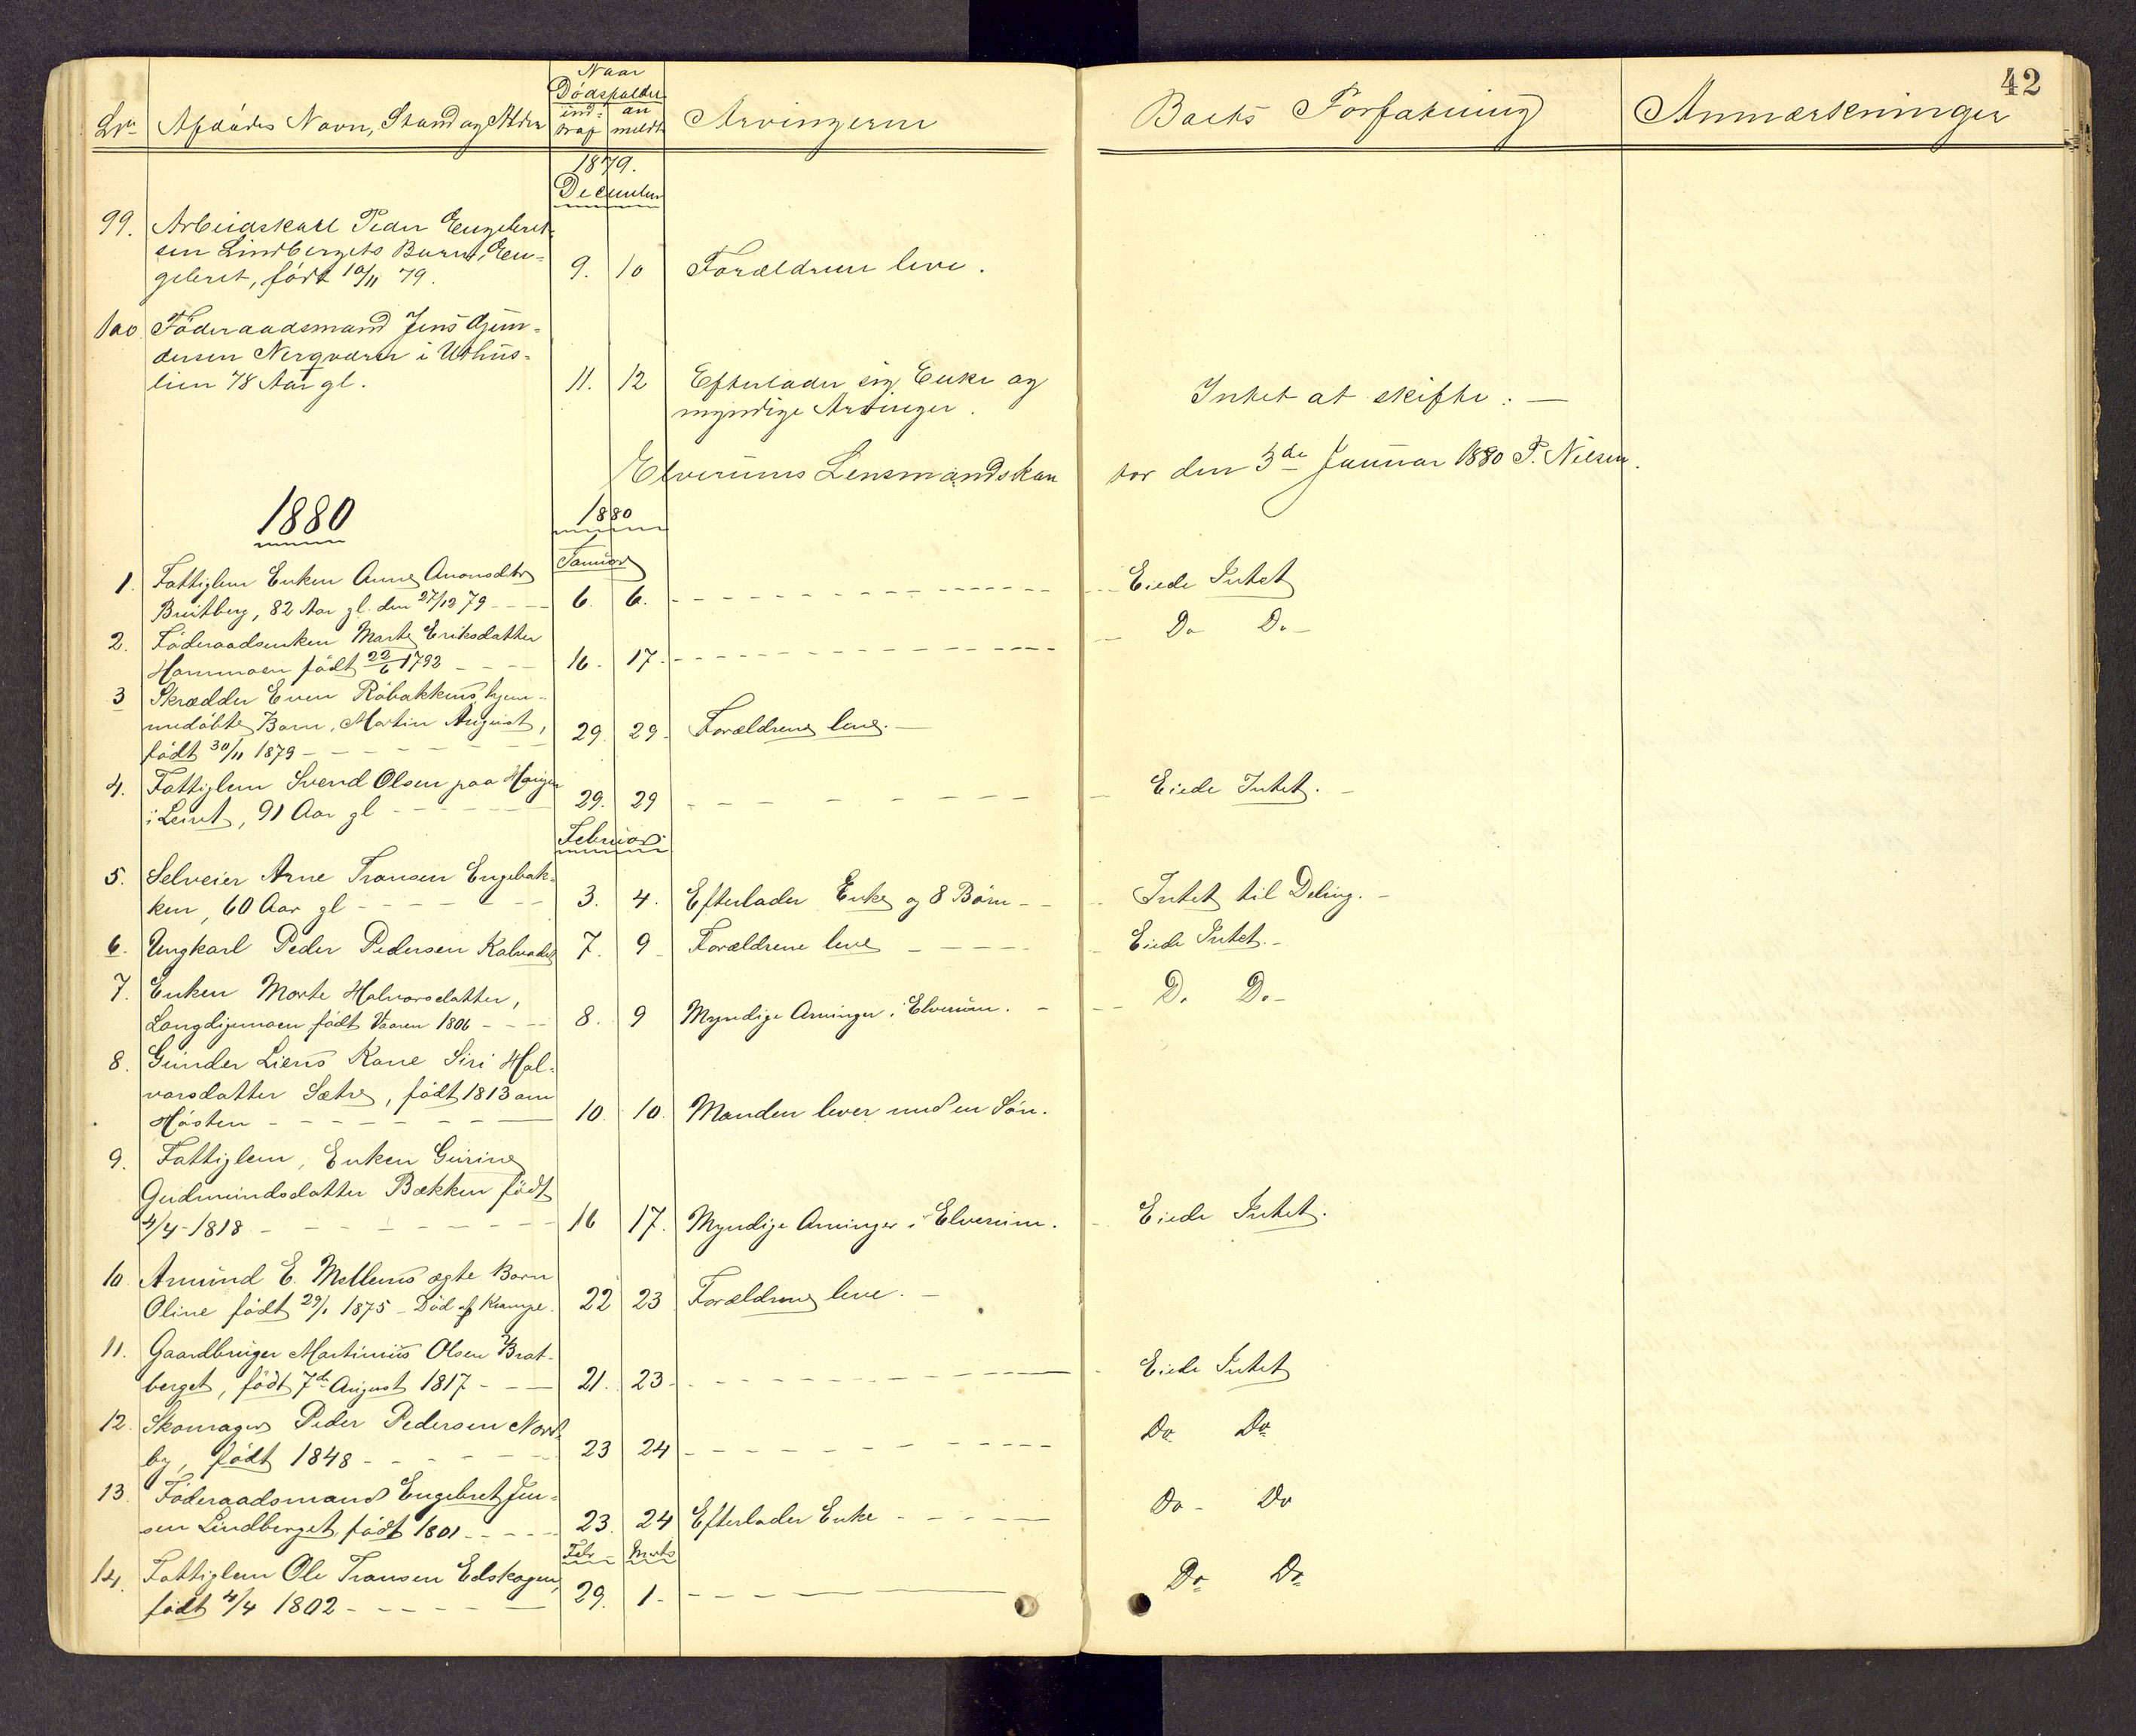 42
Naar
Dödsfaldet
Lbn Afdödes Navn, Stand og Alder ind- traf an meldt Arvingerne Boets Forfatning Anmærkninger
1879.
December
99. Arbeidskarl Peder Engebret-
sen Lindbergets Barn, En-
gebret, född 10/11 79. 9. 10 Forældrene leve.
100 Föderaadsmand Jens Gun-
dersen Nergvarn i Uthus-
lien 78 Aar gl. 11. 12 Efterlader sig Enke og Intet at skifte. —
myndige Arvinger.
Elverums Lensmandskon tor den 3de Januar 1880 P. Nilsen.
1880 1880
Januar
1. Fattiglem Enken Anne Amonsdtr Eiede Intet
Breitberg, 82 Aar gl. den 27/12 79 6. 6.
2. Föderaadsenken Marte Eriksdatter Do Do
Hommoen född 22/6 1792 16. 17.
3 Skrædder Even Röbakkens hjem-
medöbte Barn, Martin August, 29. 29. Forældrene leve. —
född 30/11 1879
4. Fattiglem Svend Olsen paa Haugen Eiede Intet.
i Leiret, 91 Aar gl 29. 29
Februar
5. Selveier Arne Fransen Engebak-
ken, 60 Aar gl 3. 4. Efterlader Enke og 8 Börn Intet til Deling.
6. Ungkarl Peder Pedersen Kalvadet 7. 9 Forældrene leve Eiede Intet.
7. Enken Marte Halvorsdatter, Do Do
Langdigemoen född Vaaren 1806 8. 9 Myndige Arvinger i Elverum.
8. Gunder Liens Kone Siri Hal-
vorsdatter Sætre, född 1813 om
Hösten 10. 10. Manden lever med en Sön.
9. Fattiglem, Enken Gurine
Gudmundsdatter Bækken född
4/4 1818 16 17. Myndige Arvinger i Elverum. Eiede Intet.
10. Amund E. Mellems ægte Barn
Oline född 29/1 1875 - Död af Krampe. 22 23 Forældrene leve.
11. Gaardbruger Martinius Olsen Brat- Eiede Intet
berget, född 7de August 1817 21. 23
12. Skomager Peder Pedersen Nord- Do Do
by, född 1848 23 24
13. Föderaadsmand Engebret Jen- Do Do
sen Lindberget, född 1801 23. 24 Efterlader Enke
Febr Marts
14. Fattiglem Ole Fransen Eidskogen, Do Do
född 4/4 1802 29. 1.